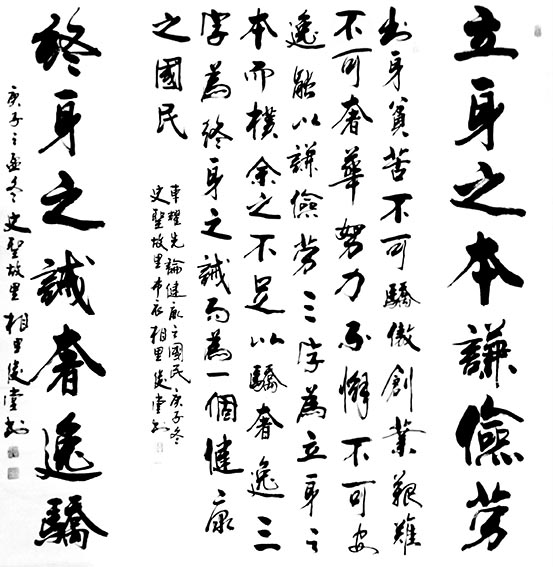 立身之本謙儉勞
出身貧苦不可驕傲創業艱難
不可奢華努力不懈不可安
逸能以謙儉勞三字為立身之
本而樸余之不足以驕奢逸三
字為終身之誡而為一個健康
之國民
車耀先論健康之國民庚子冬
史聖故里布衣相里俊堂書
終身之誡奢逸驕
庚子之孟冬史聖故里相里俊堂書